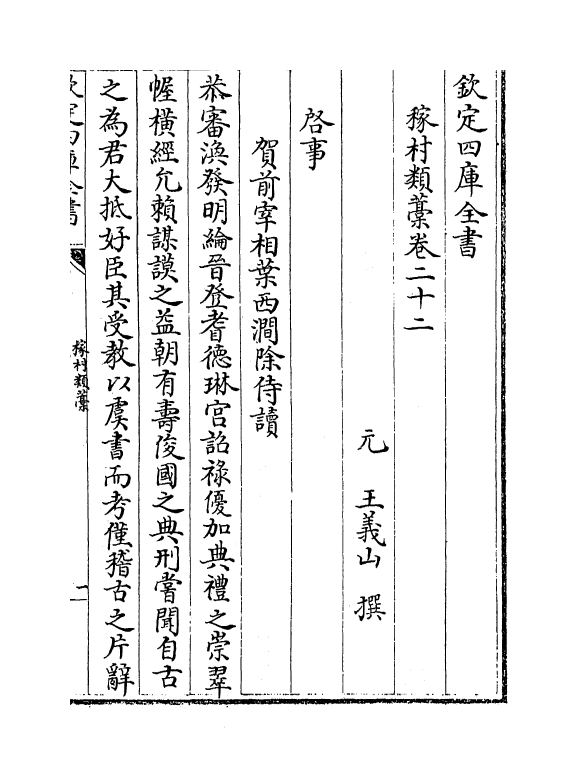 欽定四庫全書
稼村類藁卷二十二
元 王義山 撰
啓事
賀前宰相葉西澗除侍讀
恭審渙發明綸晉登耆德琳宫詔祿優加典禮之崇翠
幄橫經允賴謀謨之益朝有壽俊國之典刑嘗聞自古
之為君大抵好臣其受教以虞書而考僅稽古之片辭
欽定四庫全書
稼村類藁
一